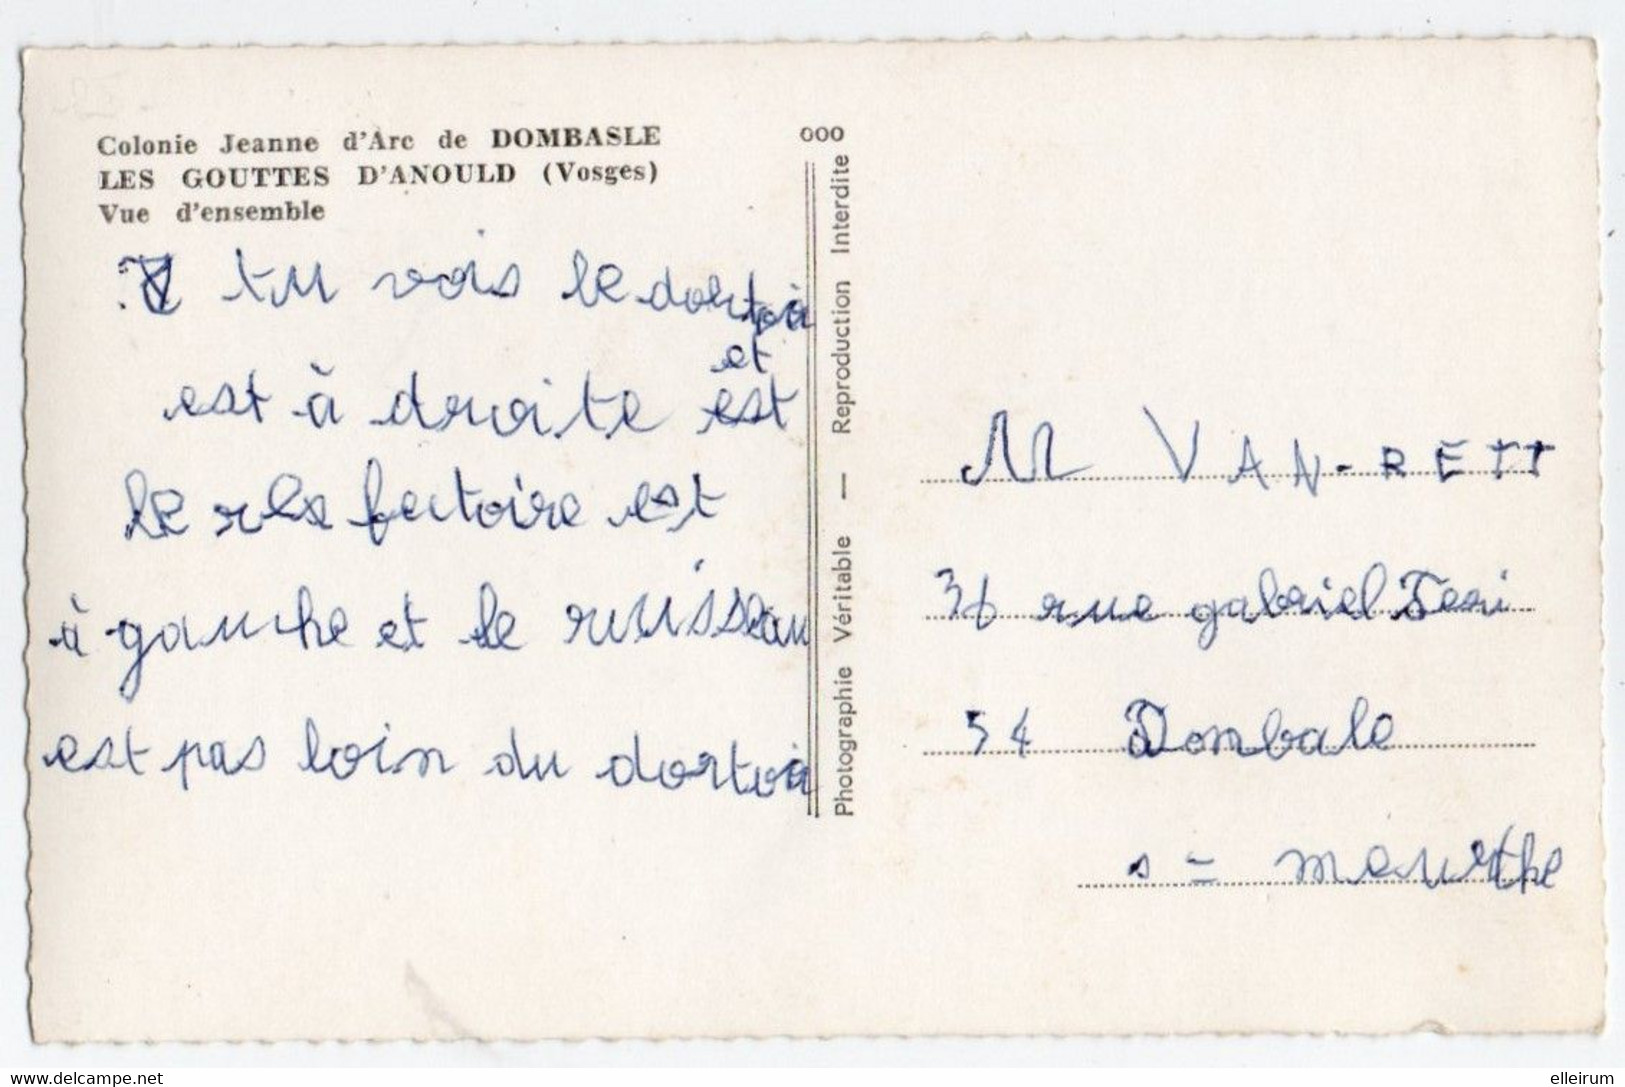 Colonie Jeanne d'Arc de DOMBASLE
LES GOUTTES D'ANOULD (Vosges)
Vue d'ensemble
tu vois le dortoi
est à droite et est
le fectoire est
à gauche et le ruisseau
est pas loin du dortoi
ooo
Photographie Véritable — Reproduction Interdite
M VAN-RETT
36 rue gabriel
54 Donbale
s = meurthe
elleirum